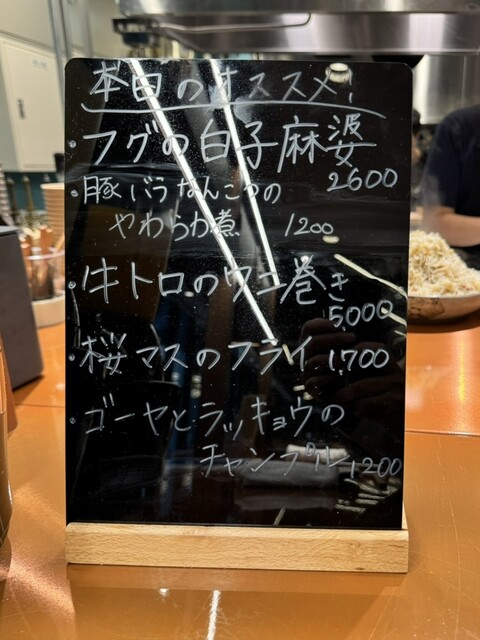 本日のオススメ!
・フグの白子麻婆
2600
・豚バラなんこつの
やわらか煮 1200
・牛トロのウニ巻き
5,000
・桜マスのフライ 1,700
・ゴーヤとラッキョウの
チャンプルー 1,200